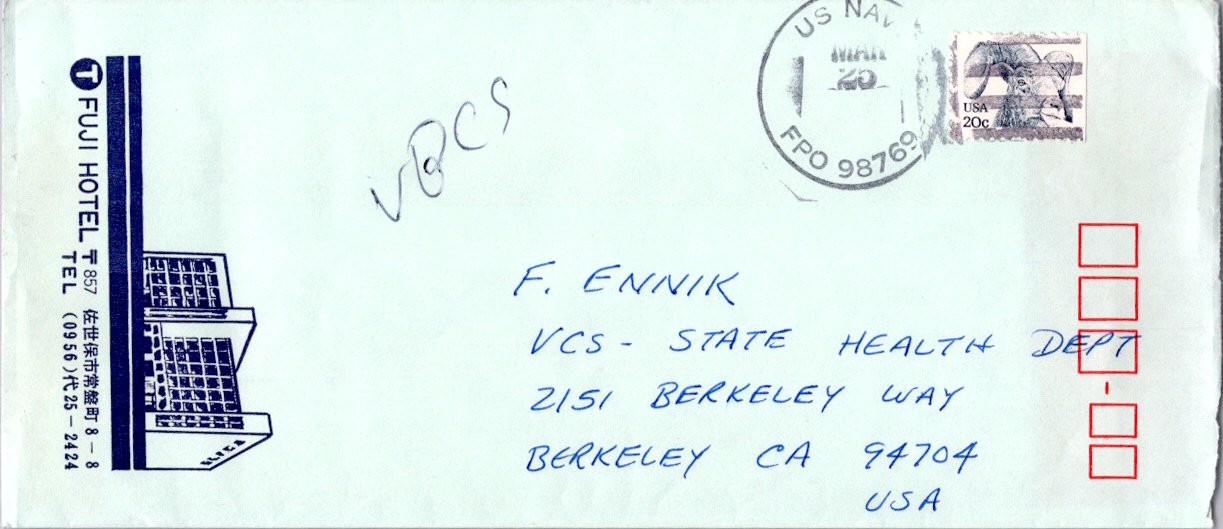 Ⓣ FUJI HOTEL 〒857 佐世保市常盤町8-8
TEL (0956)代25-2424
US NAV
MAR
25
FPO 98769
USA
20c
F. ENNIK
VCS - STATE HEALTH DEPT
2151 BERKELEY WAY
BERKELEY CA 94704
USA